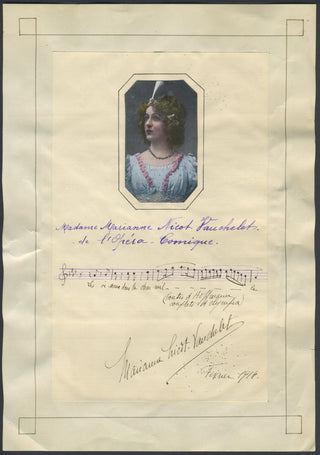 Madame Marianne Nicot Vauchelet
de l'Opéra-Comique.
Les oiseaux dans la charmille
(Contes d'Hoffmann
couplets d'Olympia)
Marianne Nicot-Vauchelet
Février 1914.